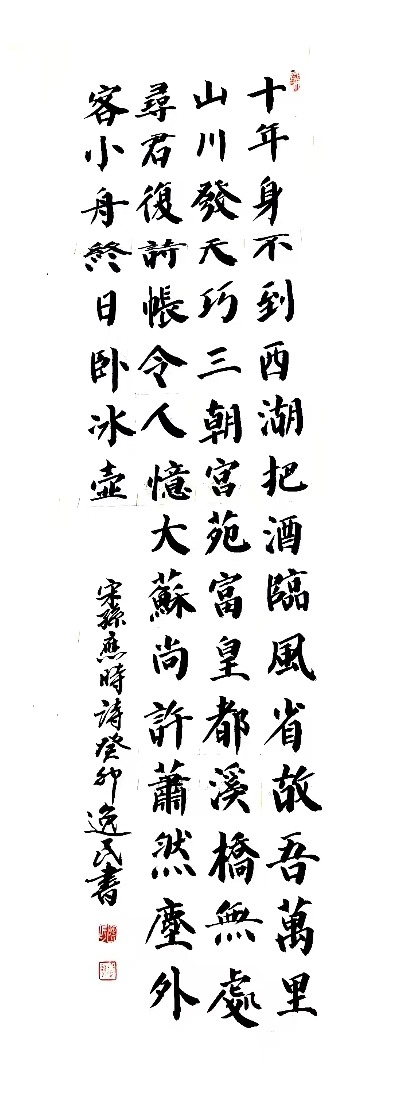 十年身不到西湖把酒臨風省故吾萬里
山川發天巧三朝宮苑富皇都溪橋無處
尋君復詩帳令人憶大蘇尚許蕭然塵外
客小舟終日卧冰壺
宋孫應時詩癸卯逸民書